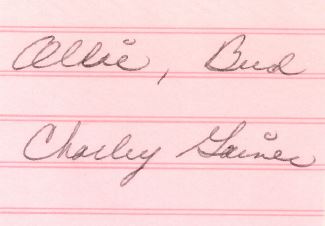 Allie, Bud
Charley Gaines